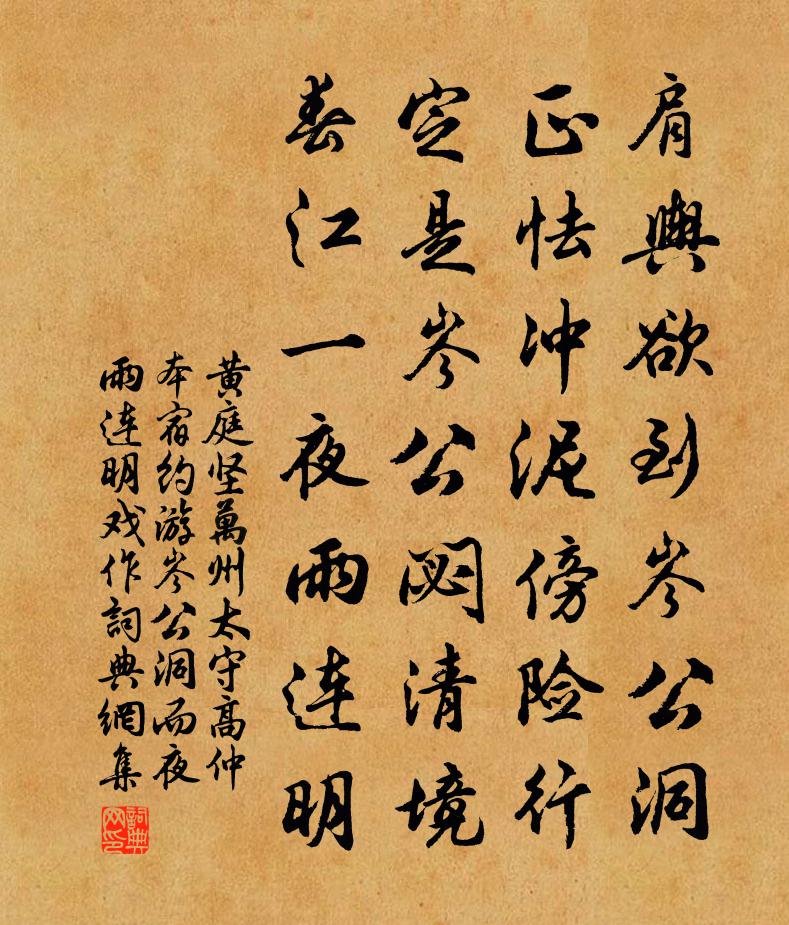 肩輿欲到岑公洞
正怯冲泥傍险行
定是岑公閟清境
春江一夜雨连明
黄庭坚萬州太守高仲
本宿约游岑公洞而夜
雨连明戏作詞典網集
詞典网印